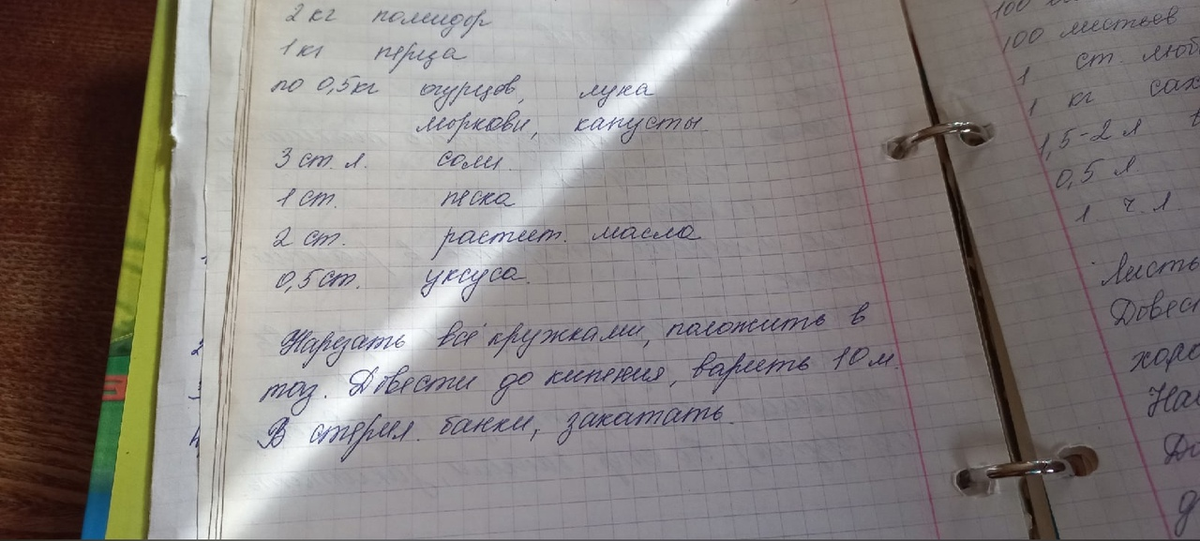 2 кг помидор
1 кг перца
по 0,5 кг огурцов, лука
моркови, капусты
3 ст. л. соли.
1 ст. песка
2 ст. растит. масла
0,5 ст. уксуса.
Нарезать всё кружками, положить в
таз. Довести до кипения, варить 10 м.
В стерил. банки, закатать.
100
100 листьев
1 ст.
1 кг сах
1,5-2 л
0,5 л
1 ч. л
Листь
Довес
хоро
На
До